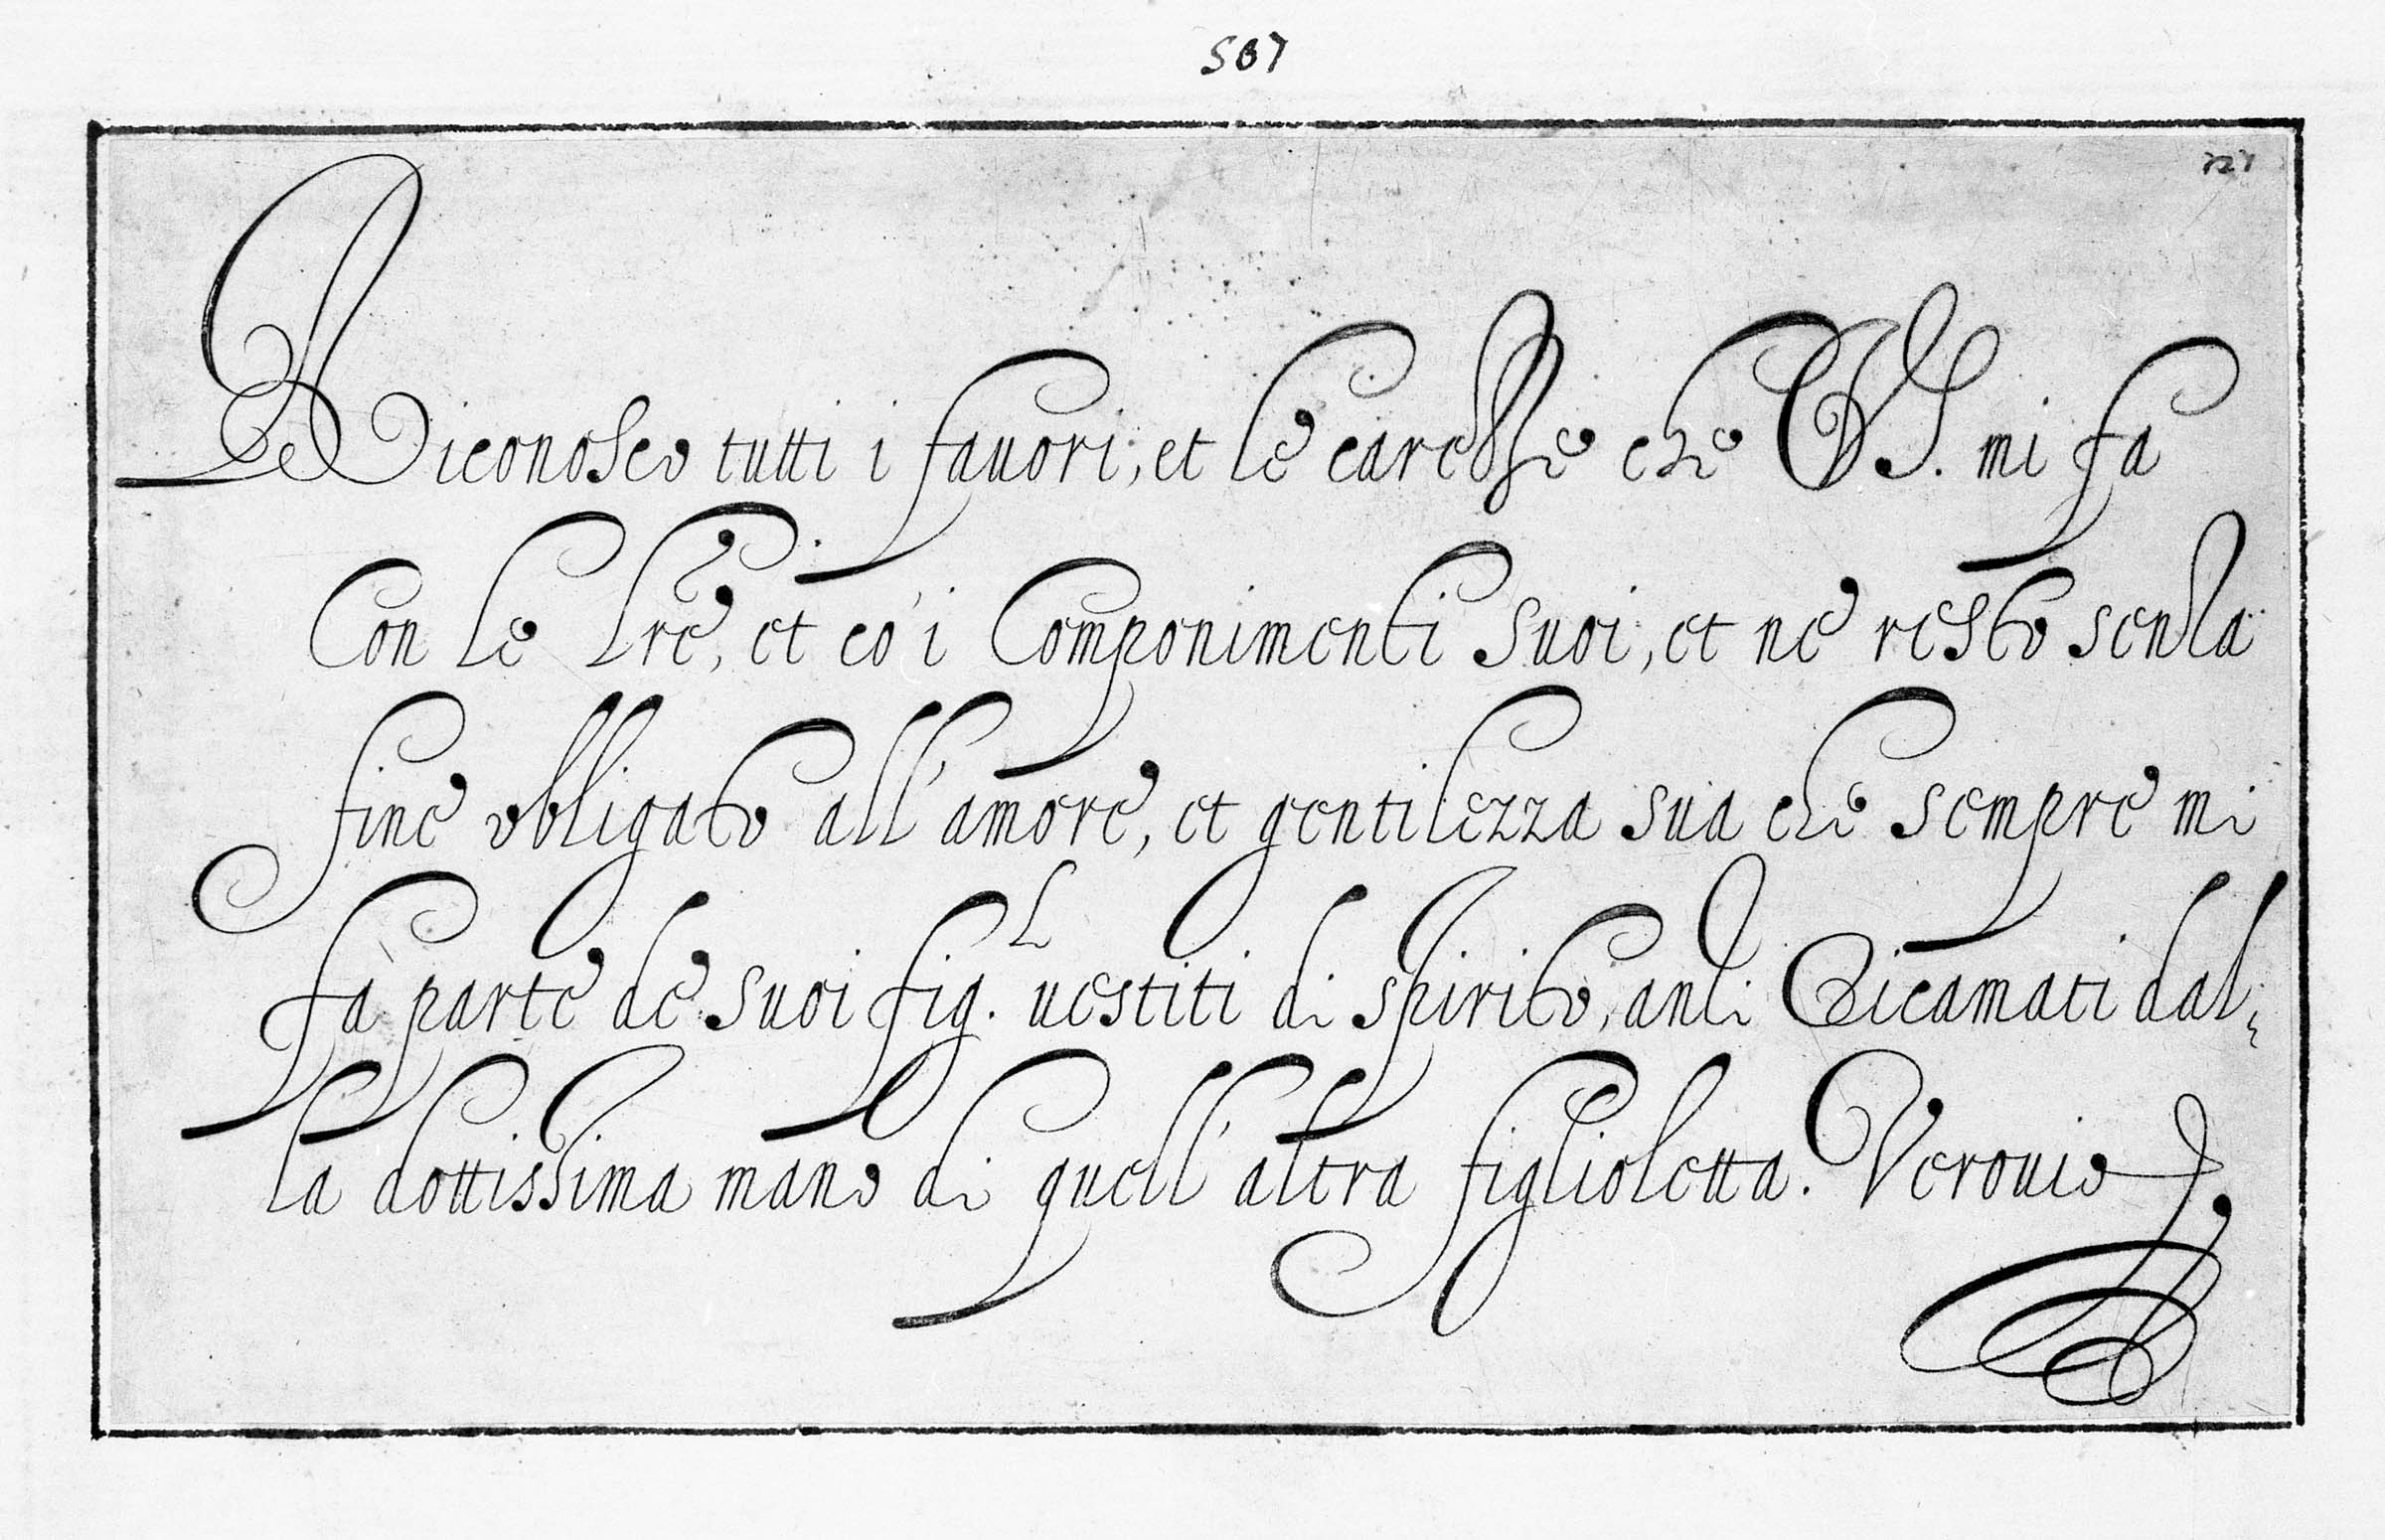 507
Riconosco tutti i fauori, et le carezze che VS. mi fa
Con le lre, et co' i Componimenti suoi, et ne resto senza
fine obligato all'amore, et gentilezza sua che sempre mi
fà parte de suoi fig.l uestiti di spirito, anzi Ricamati dal-
la dottissima mano di quell'altra figlioletta. Verouio